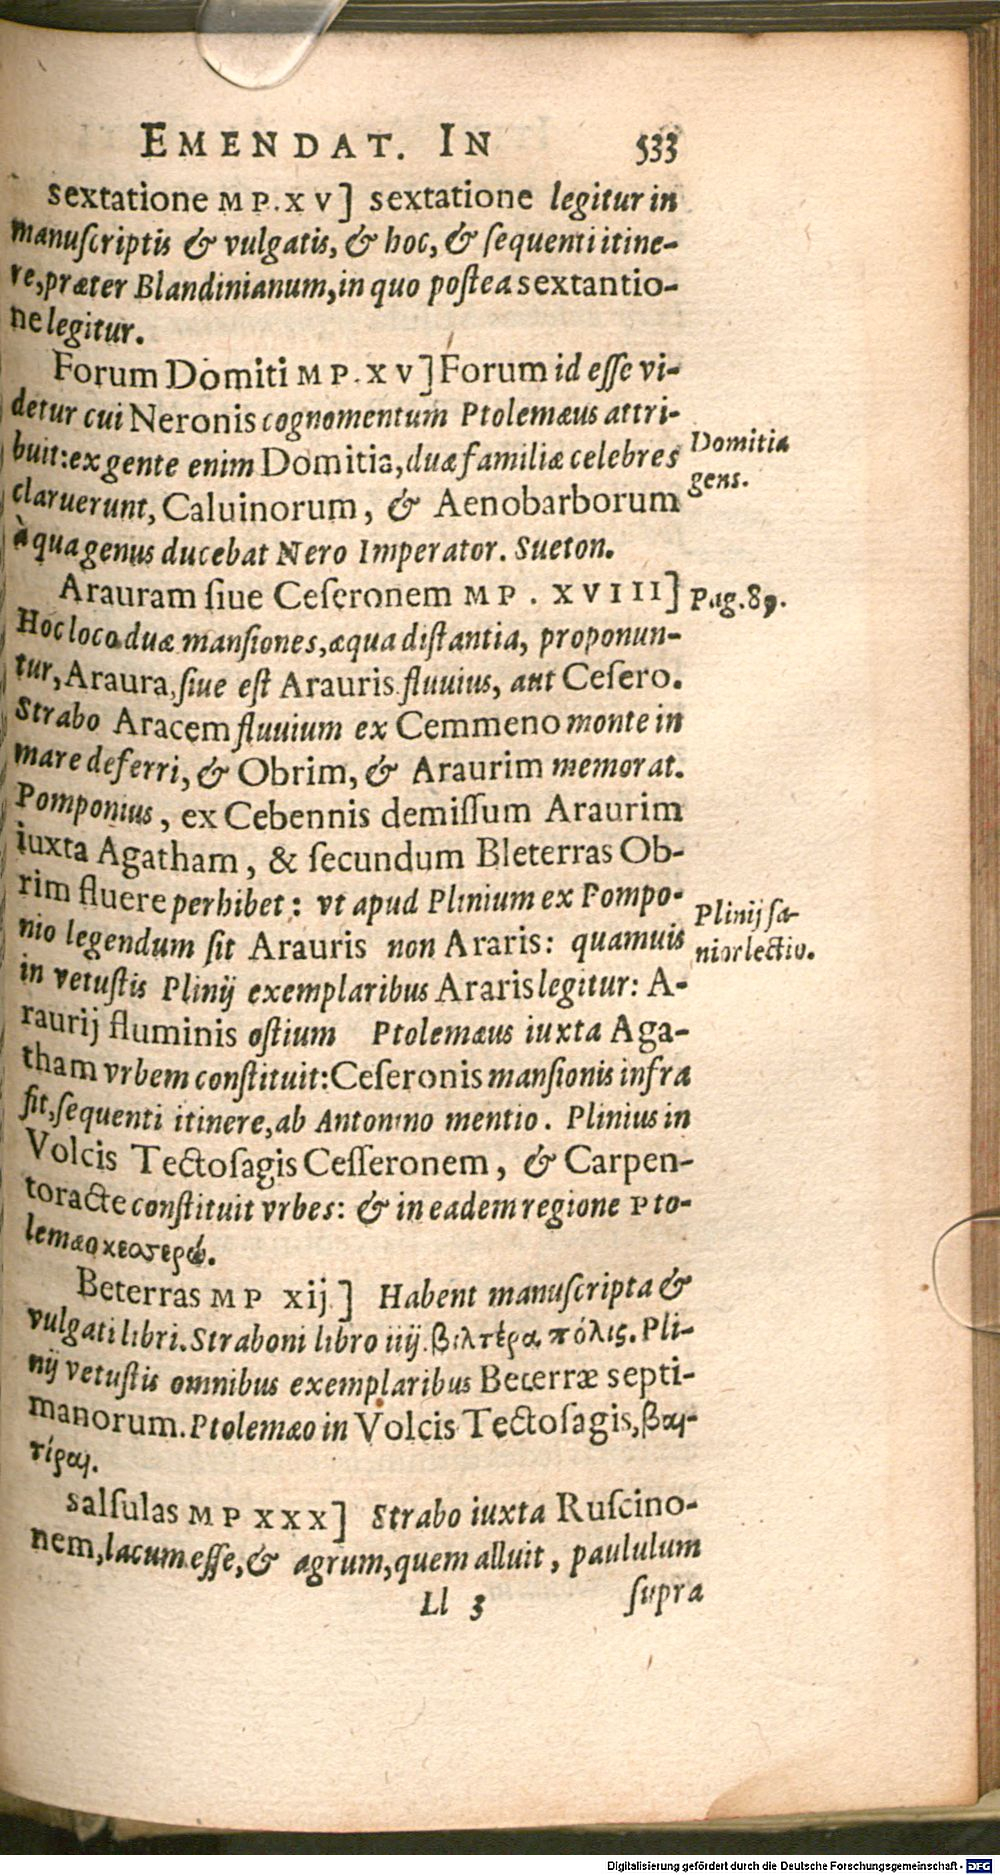 EMENDAT. IN 533
sextatione MP.XV] sextatione legitur in
manuſcriptis & vulgatis, & hoc, & ſequenti itine-
re, præter Blandinianum, in quo poſtea sextantio-
ne legitur.
Forum Domiti MP.XV] Forum id eſſe vi-
detur cui Neronis cognomentum Ptolemæus attri-
buit: ex gente enim Domitia, duæ familiæ celebres
Domitia
claruerunt, Caluinorum, & Aenobarborum
gens.
à qua genus ducebat Nero Imperator. Sueton.
Arauram ſiue Ceſeronem MP. XVIII]
Pag. 89.
Hoc loco duæ manſiones, æqua diſtantia, proponun-
tur, Araura, ſiue eſt Arauris fluuius, aut Ceſero.
Strabo Aracem fluuium ex Cemmeno monte in
mare deferri, & Obrim, & Araurim memorat.
Pomponius, ex Cebennis demiſſum Araurim
iuxta Agatham, & ſecundum Bleterras Ob-
rim fluere perhibet: vt apud Plinium ex Pompo-
Plinij ſa-
nio legendum ſit Arauris non Araris: quamuis
nior lectio.
in vetuſtis Plinij exemplaribus Araris legitur: A-
raurij fluminis oſtium Ptolemæus iuxta Aga-
tham vrbem conſtituit: Ceſeronis manſionis infra
fit, ſequenti itinere, ab Antonino mentio. Plinius in
Volcis Tectoſagis Ceſſeronem, & Carpen-
toracte conſtituit vrbes: & in eadem regione Pto-
lemæo
Beterras MP xij] Habent manuſcripta &
vulgati libri. Straboni libro iiij. βιλτέρα πόλις. Pli-
nij vetuſtis omnibus exemplaribus Beterræ septi-
manorum. Ptolemæo in Volcis Tectoſagis, βαι-
τίραι.
salſulas MP XXX] Strabo iuxta Ruſcino-
nem, lacum eſſe, & agrum, quem alluit, paululum
Ll 3 ſupra
Digitalisierung gefördert durch die Deutsche Forschungsgemeinschaft - DFG